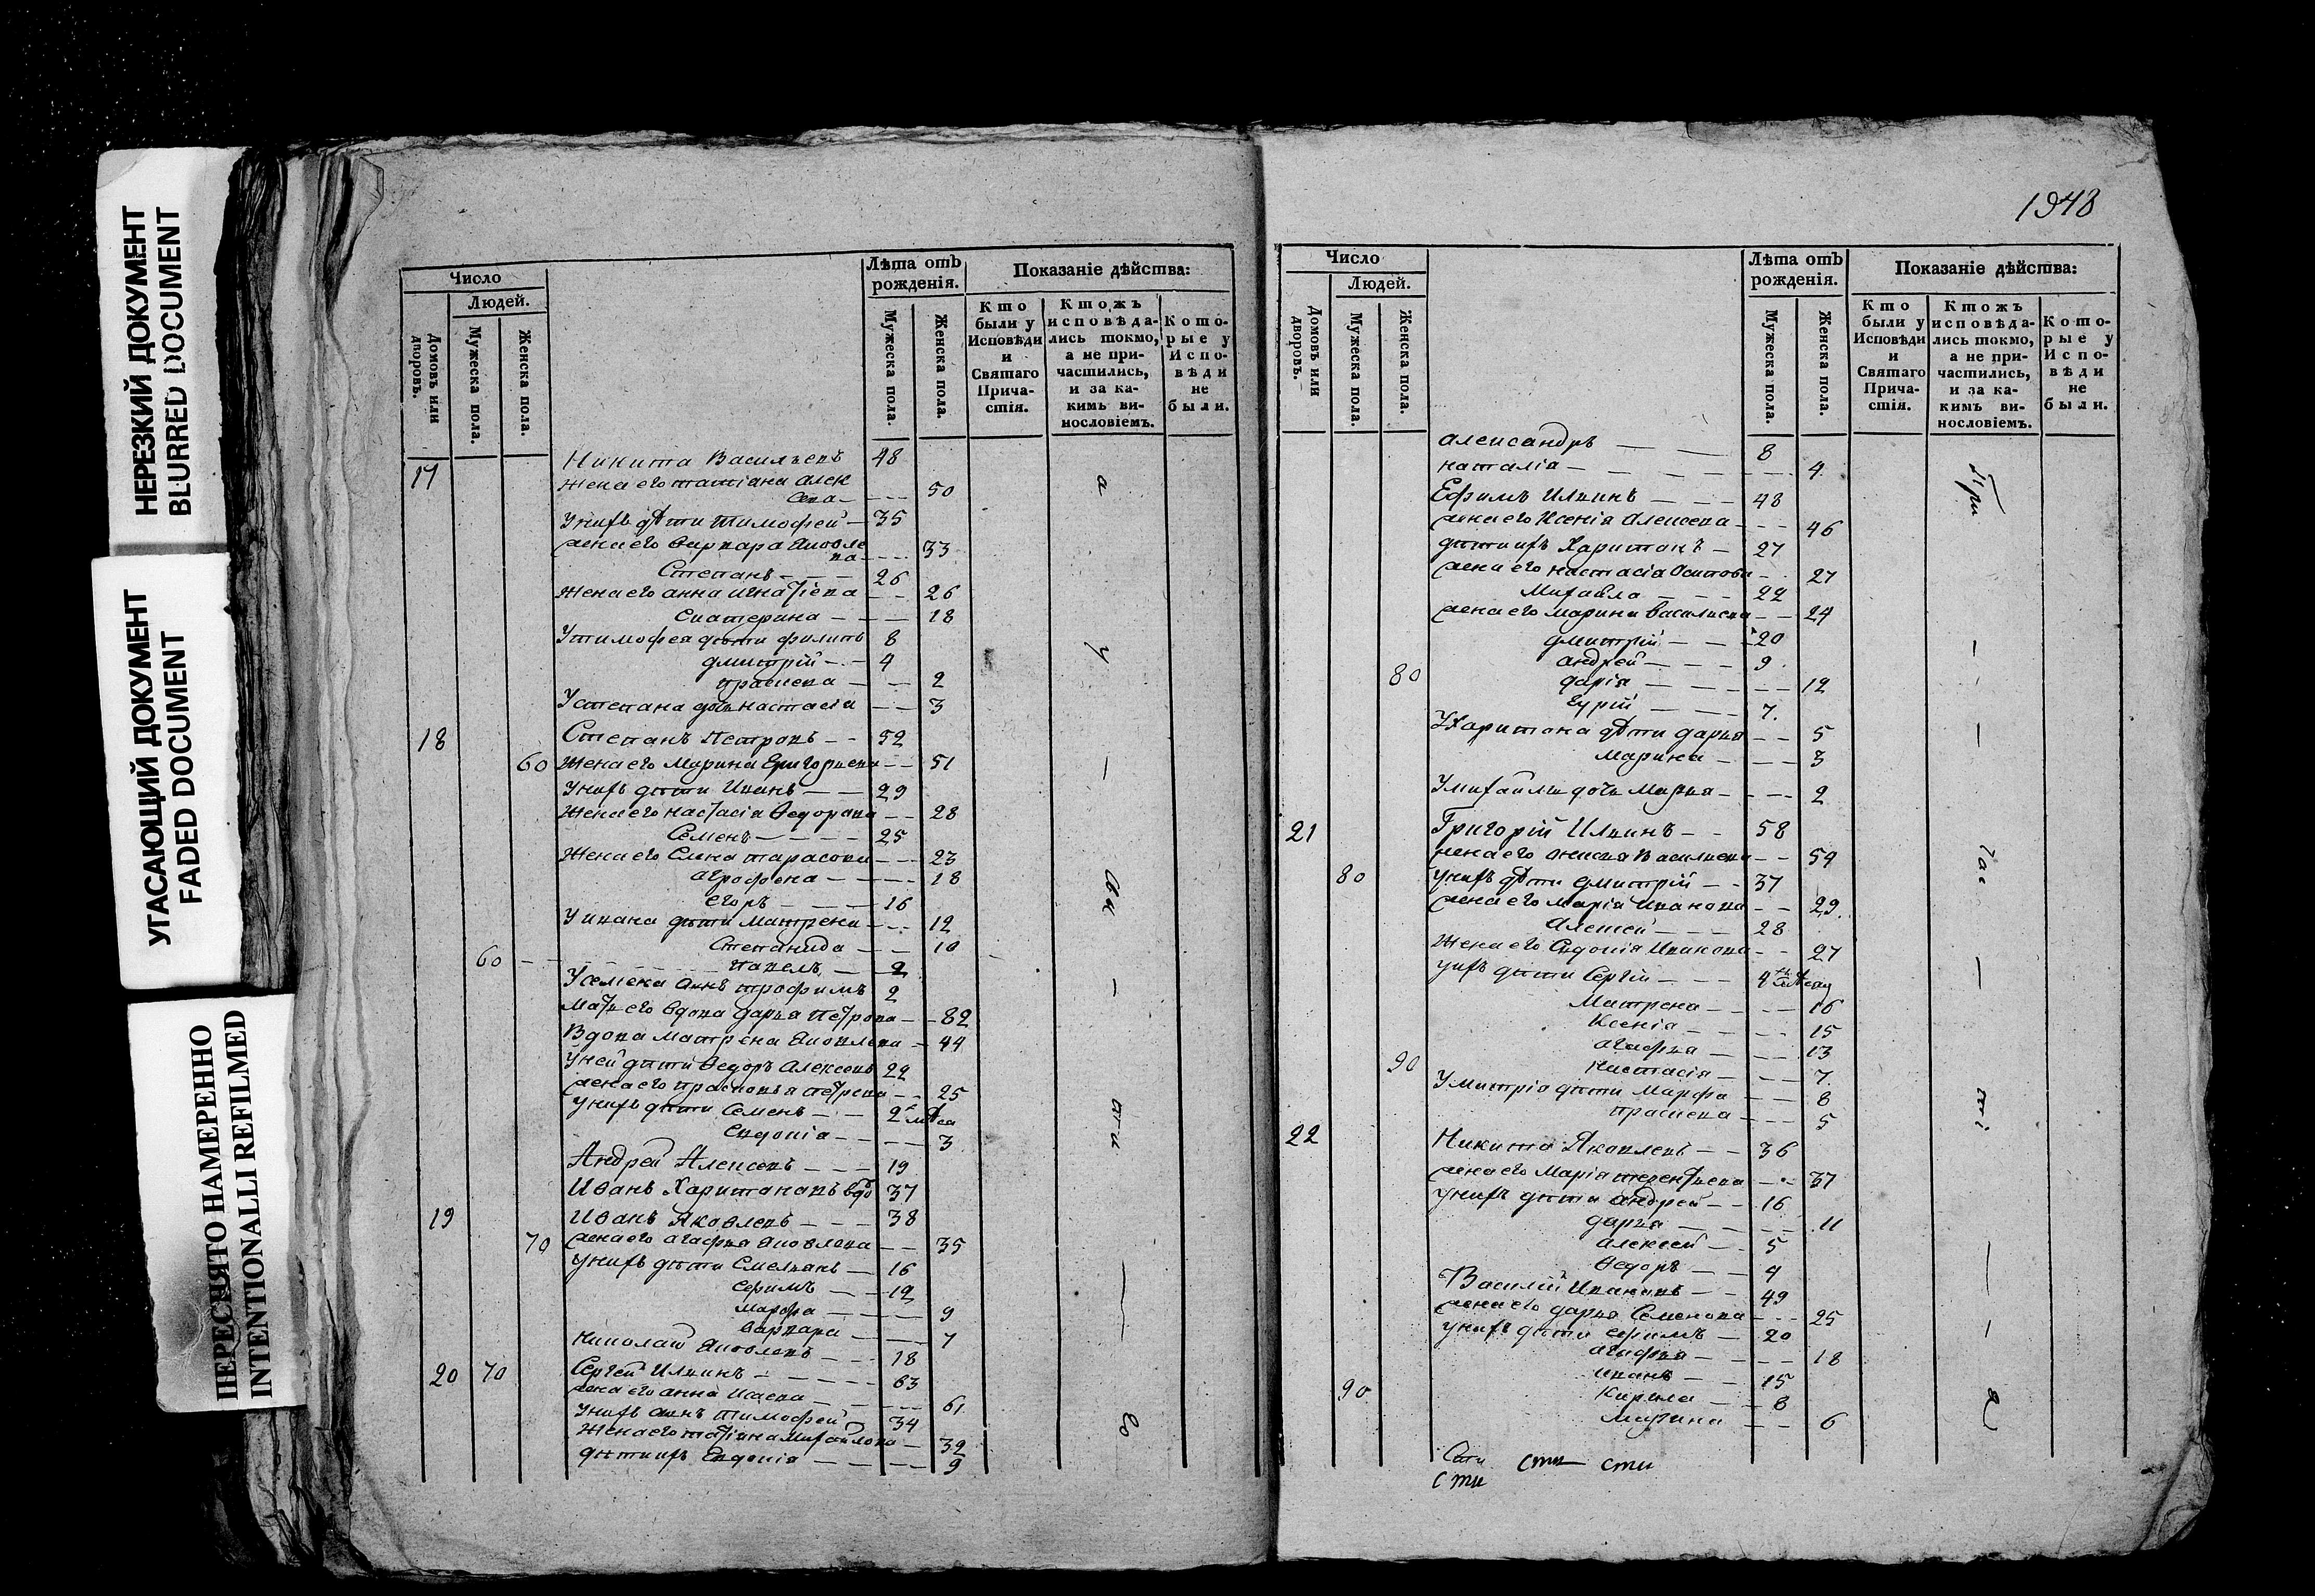 НЕРЕЗКИЙ ДОКУМЕНТ
BLURRED DOCUMENT
УГАСАЮЩИЙ ДОКУМЕНТ
FADED DOCUMENT
ПЕРЕСНЯТО НАМЕРЕННО
INTENTIONALLI REFILMED
Число
Людей.
Домовъ или дворовъ.
Мужеска пола.
Женска пола.
Лѣта отъ рожденія.
Мужеска пола.
Женска пола.
Показаніе дѣйства:
Кто были у Исповѣди и Святаго Причастія.
Ктожъ исповѣдались токмо, а не причастились, и за какимъ винословіемъ.
Которые у Исповѣди не были.
17 Никита Васильевъ 48
Жена его татіана алек
сева 50
Унихъ дѣти тимофей 35
жена его варвара яковле
ва 33
Степанъ 26
Жена его анна игнатіева 26
Екатерина 18
У тимофея дѣти филипъ 8
дмитрій 4
праскева 2
У степана дочь настасія 3
18 Степанъ Петровъ 52
60 Жена его Марина Григорьева 51
Унихъ дѣти Иванъ 29
Жена его настасіа Ѳедорова 28
Семенъ 25
Жена его Елена тарасова 23
агрофена 18
егоръ 16
У ивана дѣти Матрена 12
Степанида 10
60 павелъ 2
У семена сынъ трофимъ 2
Мать его вдова дарья петрова 82
Вдова матрена Яковлева 44
Уней дѣти Ѳедоръ алексевъ 22
жена его прасковья петрова 25
Унихъ дѣти Семенъ 2
Евдокіа 3
Андрей Алексевъ 19
Иванъ Харитановъ вдо 37
19 Иванъ Яковлевъ 38
70 жена его агафья Яковлева 35
Унихъ дѣти Емельянъ 16
ефимъ 12
марфа 9
варвара 7
николай Яковлевъ 18
20 70 Сергей Илвинъ 63
жена его анна Исаева 61
Унихъ сынъ тимофей 34
Жена его татіана Михайлова 32
дѣти ихъ Евдокіа 9
1948
Число
Людей.
Домовъ или дворовъ.
Мужеска пола.
Женска пола.
Лѣта отъ рожденія.
Мужеска пола.
Женска пола.
Показаніе дѣйства:
Кто были у Исповѣди и Святаго Причастія.
Ктожъ исповѣдались токмо, а не причастились, и за какимъ винословіемъ.
Которые у Исповѣди не были.
александръ 8
наталіа 4
Ефимъ Илвинъ 48
жена его Ксеніа Алексева 46
дѣти ихъ Харитонъ 27
жена его настасіа Осипова 27
Михайла 22
жена его Марина васильева 24
дмитрій 20
андрей 9
80 даріа 12
Гурій 7
У Харитона дѣти дарья 5
Марина 3
У михайлы дочь Марья 2
21 Григорій Илвинъ 58
жена его анисья васильева 59
80 Унихъ дѣти дмитрій 37
жена его Маріа иванова 29
Алексей 28
Жена его Евдокіа Иванова 27
Унихъ дѣти Сергій 4
Матрена 16
Ксеніа 15
агафья 13
90 настасіа 7
У митріа дѣти Марфа 8
праскева 5
22 Никита Яковлевъ 36
жена его Маріа терентьева 37
Унихъ дѣти андрей 16
дарья 11
алексей 5
Ѳедоръ 4
Василій Ивановъ 49
жена его дарья Семенова 25
Унихъ дѣти ефимъ 20
агафья 18
иванъ 15
90 Кирила 8
Марина 6
Сти сти сти
сти